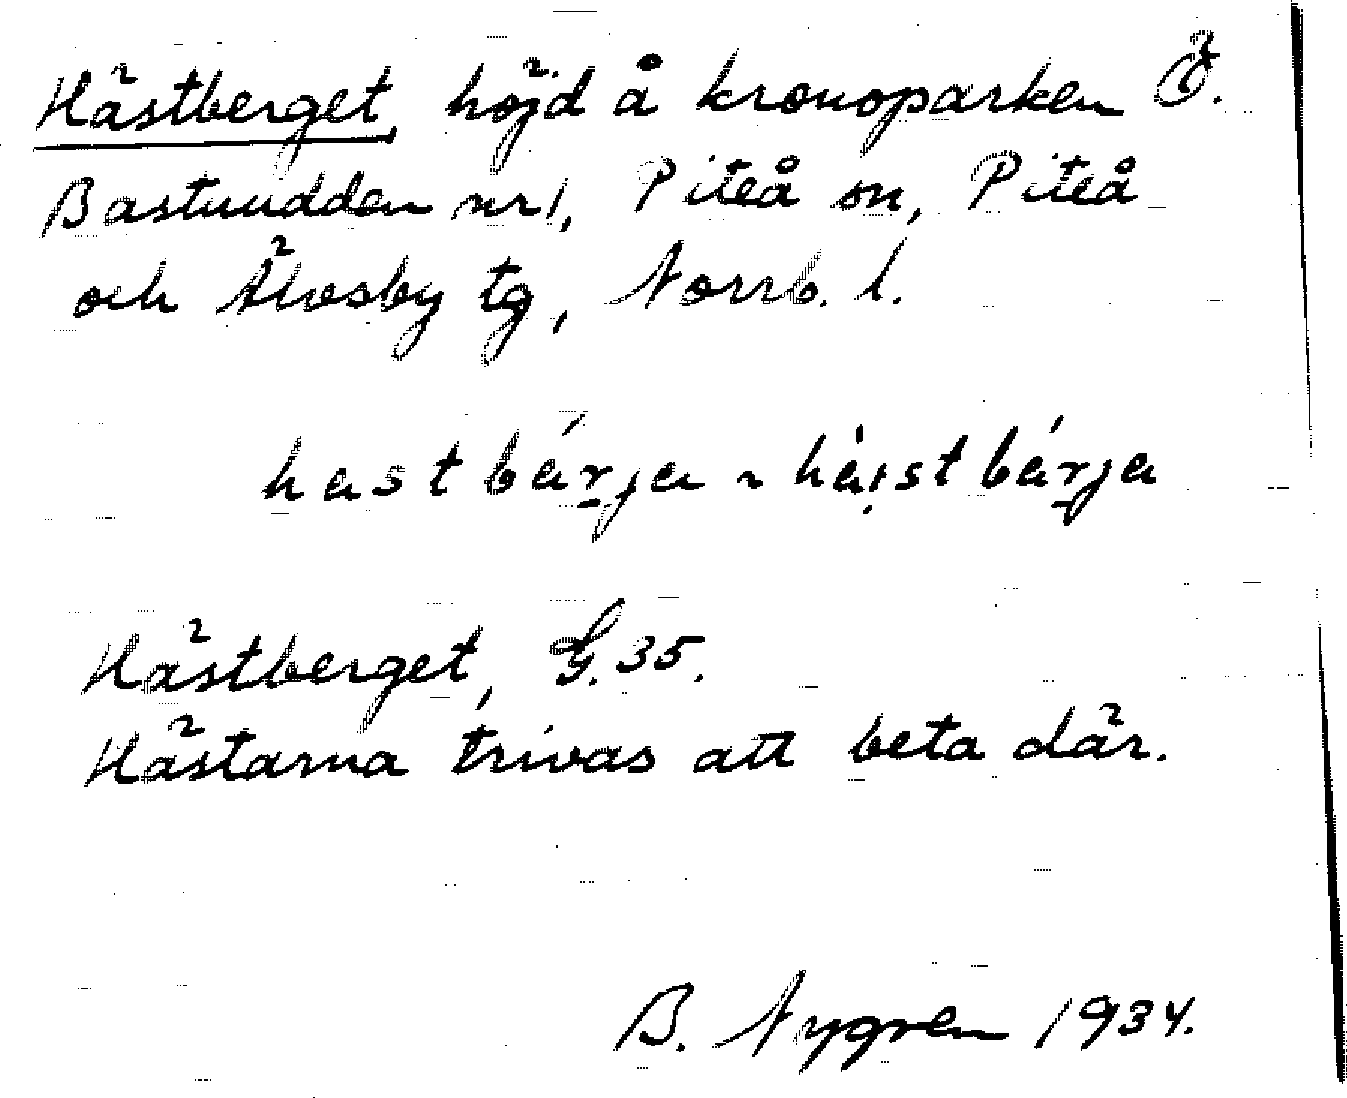 Hästberget, höjd å kronoparken Ö.
Bastuudden nr 1, Piteå sn, Piteå
och Älvsby tg, Norrb. l.
hastbárja ~ håistbárja
Hästberget, G.35.
Hästarna trivas att beta där.
B. Nygren 1934.